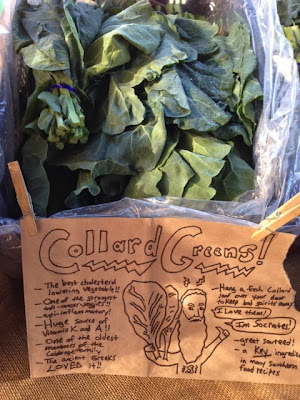 Collard Greens!
- The best cholesterol
lowering vegetable!!
- One of the strongest
anti-cancer veggies!!
anti-inflammatory!
- Huge source of
Vitamins K and A!!
- One of the oldest
members of the
Cabbage family.
The ancient Greeks
LOVED it!!
- Hang a fresh collard
leaf over your door
to keep bad spirits away!
I Love them!
I'm Socrates!
- great sauteed!
- a Key ingredient
in many Southern
food recipes